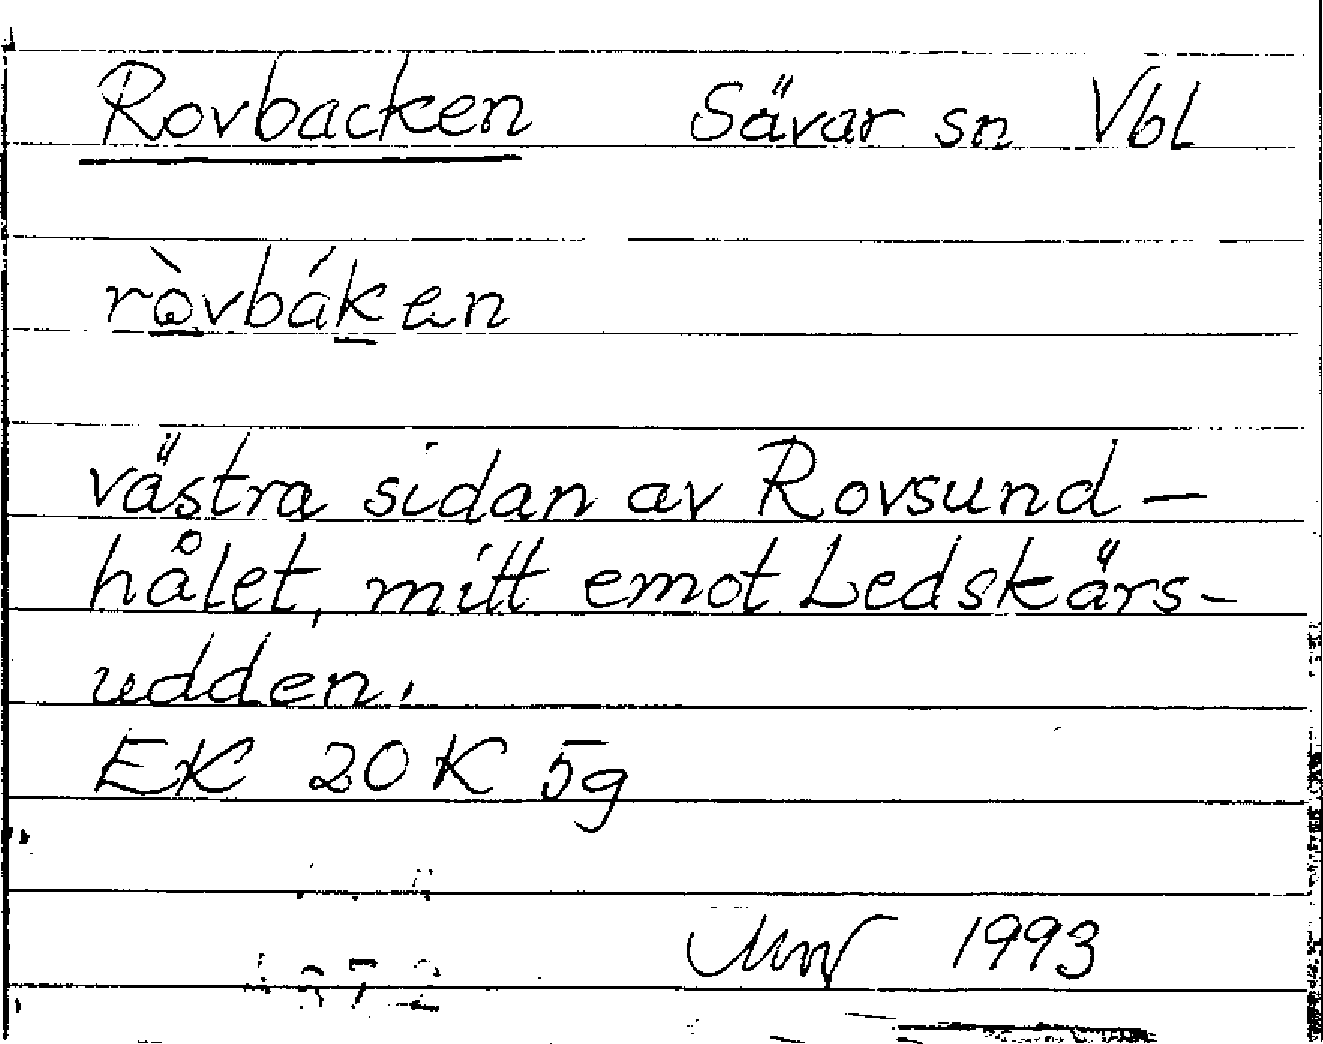 Rovbacken Sävar sn Vbl
ròvbáken
västra sidan av Rovsund-
hålet, mitt emot Ledskärs-
udden.
EK 20K 5g
1993